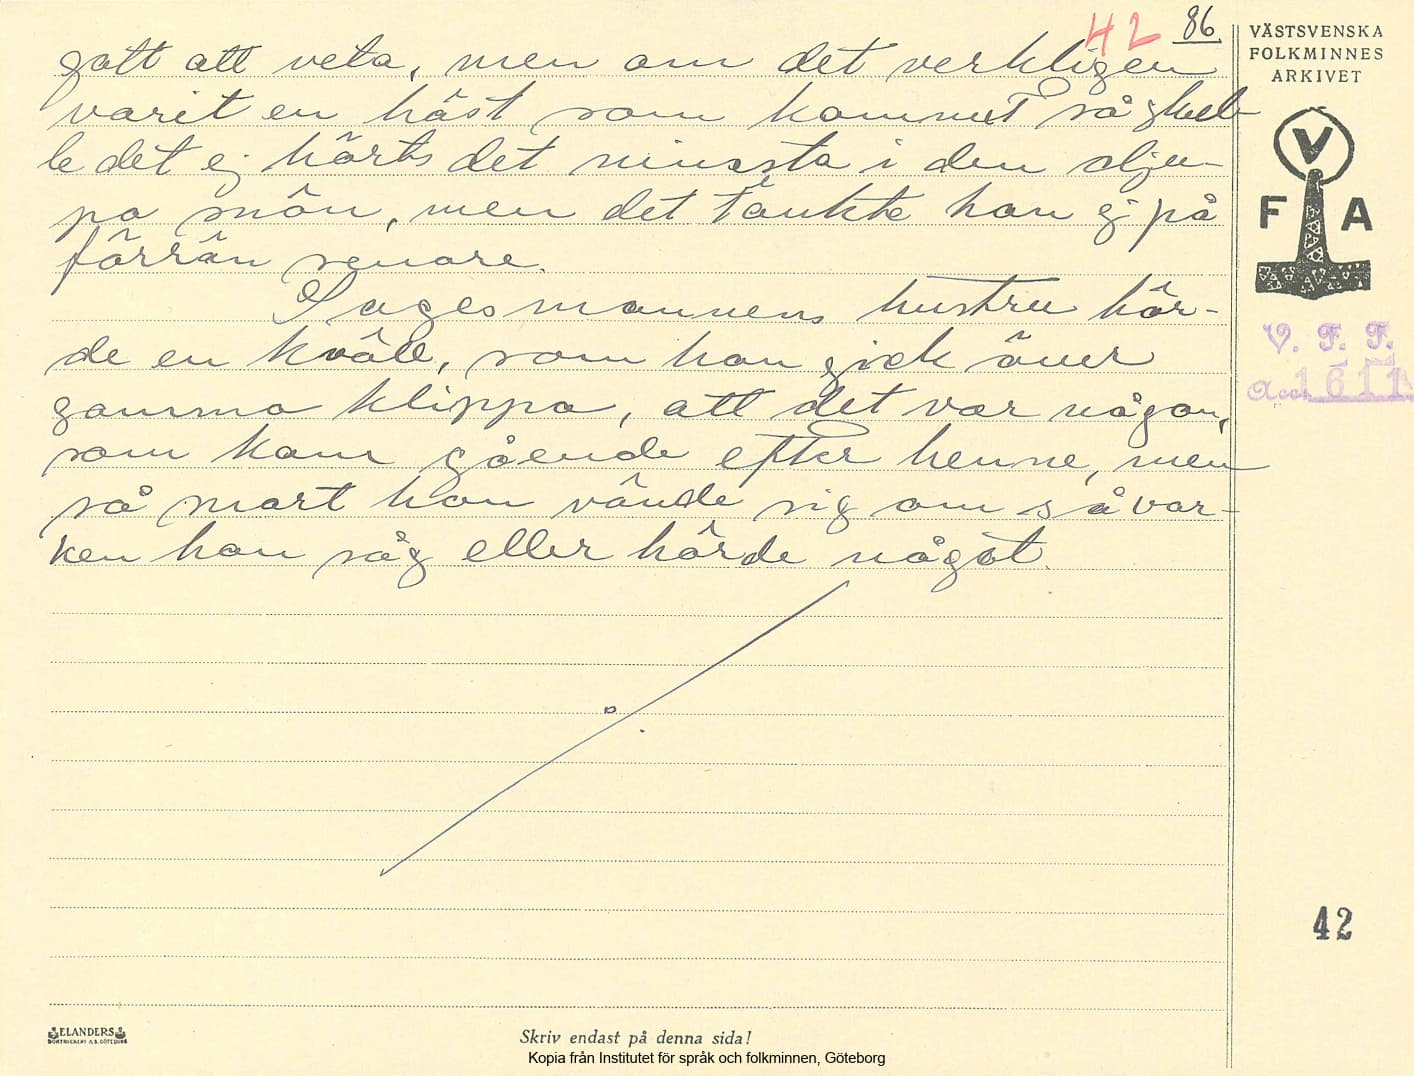 42 86
gott att veta, men om det verkligen
varit en häst som kommit så skul-
le det ej hörts det minsta i den dju-
pa snön, men det tänkte han ej på
förrän senare.
Sagesmannens hustru hör-
de en kväll, som hon gick över
gamma klippa, att det var någon,
som kom gående efter henne, men
så snart hon vände sig om så var-
ken hon såg eller hörde något.
VÄSTSVENSKA
FOLKMINNES
ARKIVET
V
F A
V. F. F.
Acc. 1611
42
ELANDERS
BOKTRYCKERI A.B. GÖTEBORG
Skriv endast på denna sida!
Kopia från Institutet för språk och folkminnen, Göteborg